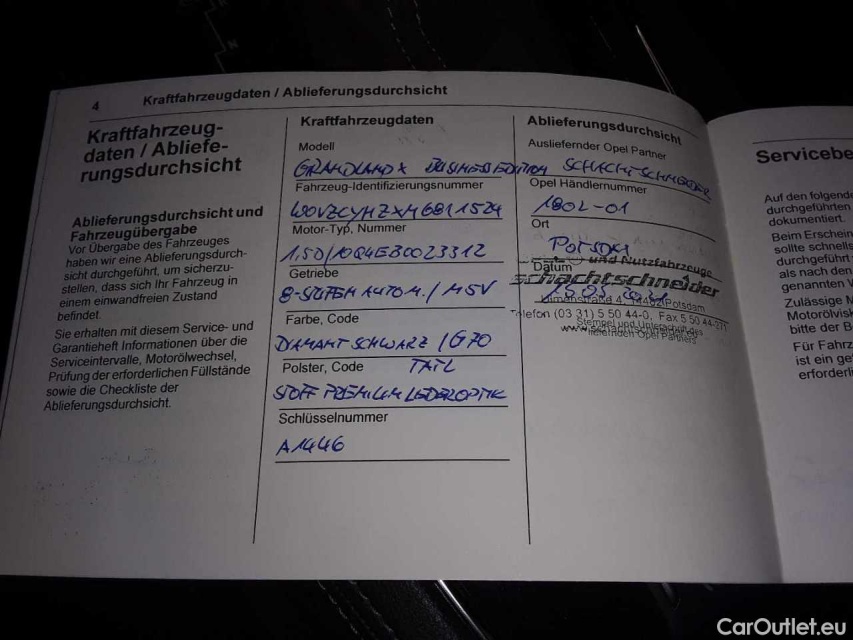 4 Kraftfahrzeugdaten / Ablieferungsdurchsicht
Kraftfahrzeug-
daten / Abliefe-
rungsdurchsicht
Ablieferungsdurchsicht und
Fahrzeugübergabe
Vor Übergabe des Fahrzeuges
haben wir eine Ablieferungsdurch-
sicht durchgeführt, um sicherzu-
stellen, dass sich Ihr Fahrzeug in
einem einwandfreien Zustand
befindet.
Sie erhalten mit diesem Service- und
Garantieheft Informationen über die
Serviceintervalle, Motorölwechsel,
Prüfung der erforderlichen Füllstände
sowie die Checkliste der
Ablieferungsdurchsicht.
Kraftfahrzeugdaten
Modell
GRANDLAND X BUSINESS EDITION
Fahrzeug-Identifizierungsnummer
W0VZCYHZXM6811524
Motor-Typ, Nummer
1,5D/10Q4EB0023312
Getriebe
8-STUFEN AUTOM./
Farbe, Code
DIAMANT SCHWARZ / G70
Polster, Code TATL
STOFF PREMIUM LEDEROPTIK
Schlüsselnummer
A1446
Ablieferungsdurchsicht
Ausliefernder Opel Partner
SCHACHTSCHNEIDER
Opel Händlernummer
1802-01
Ort
POTSDAM
Datum
und Nutzfahrzeuge
schachtschneider
Potsdam
Telefon (03 31) 5 50 44-0, Fax 5 50 44-
Stempel und Unterschrift des
liefernden Opel Partners
Servicebe
Auf den folgende
durchgeführten
dokumentiert.
Beim Erschein
sollte schnells
durchgeführt
als nach den
genannten W
Zulässige M
Motorölvisk
bitte der B
Für Fahrz
ist ein ge
erforderli
CarOutlet.eu